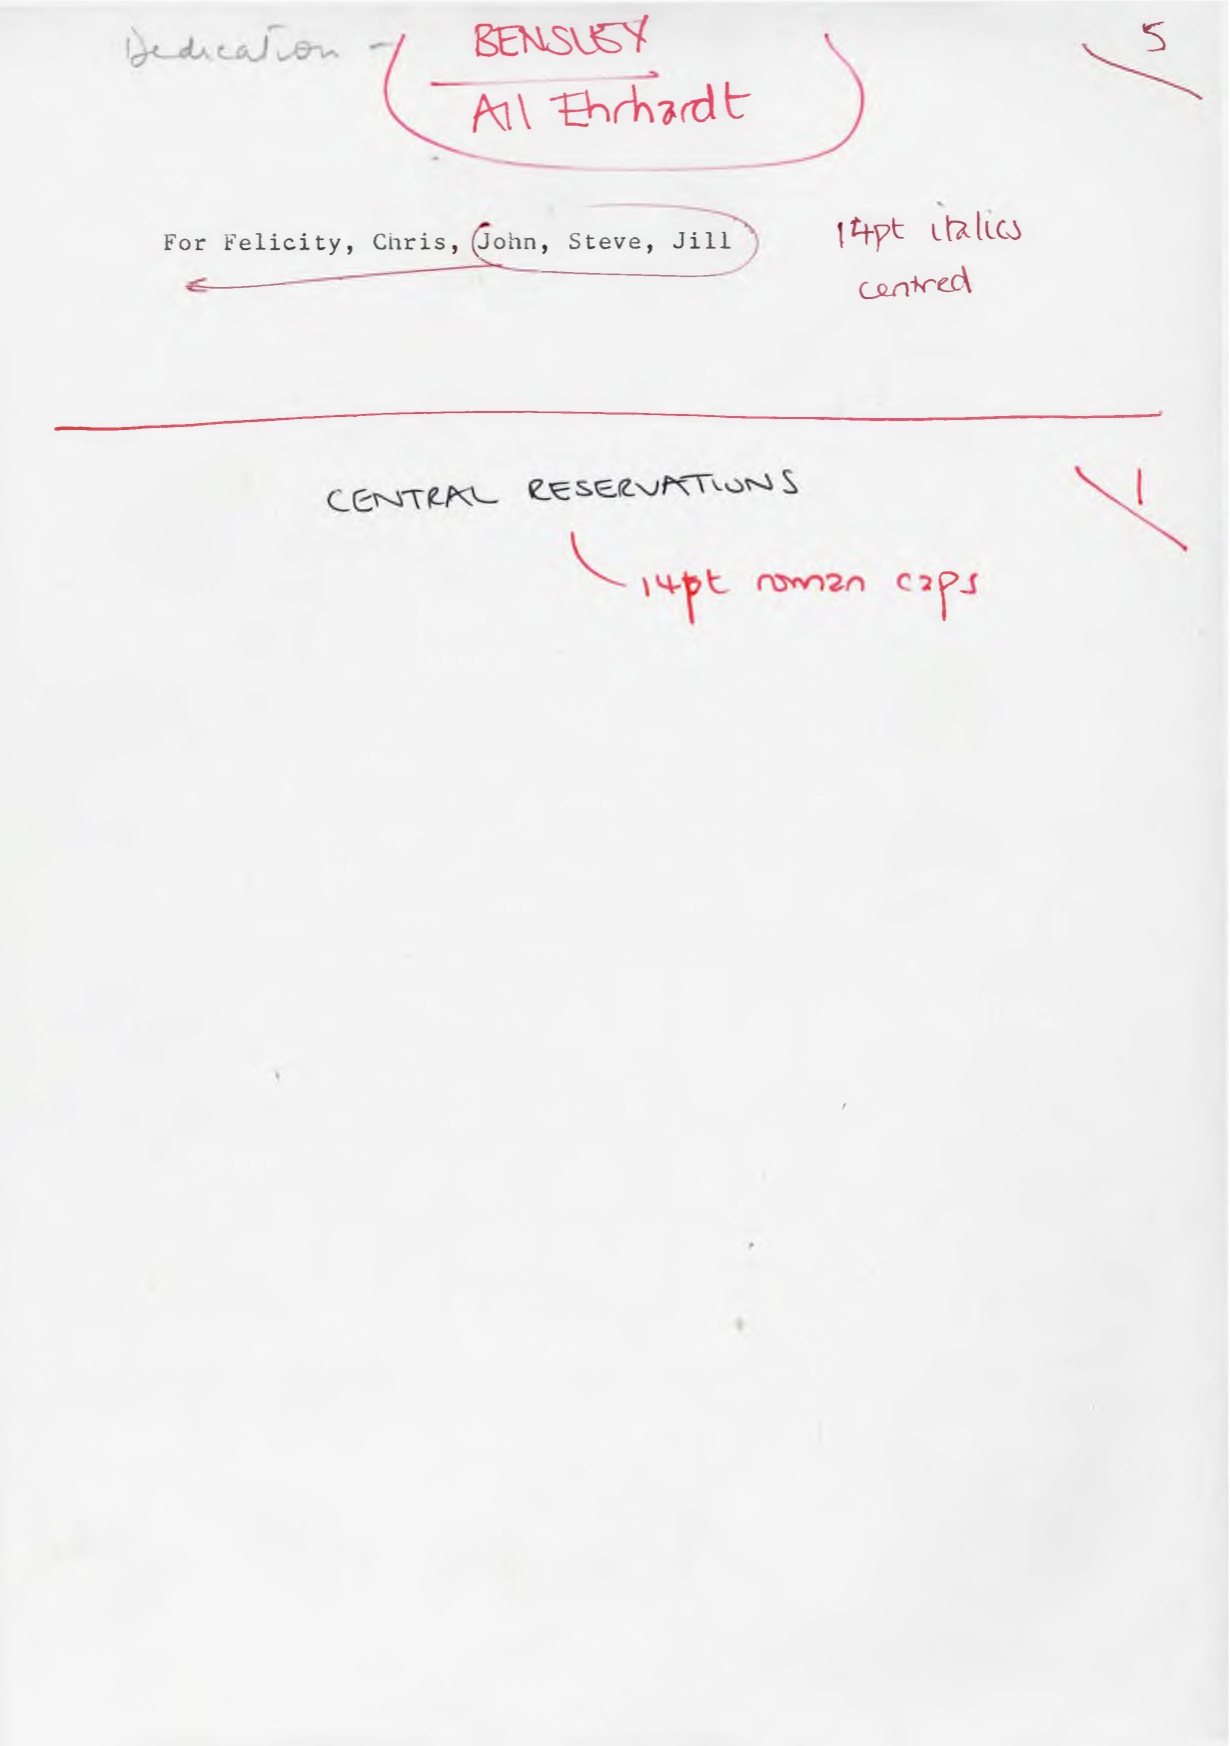 Dedication -
BENSLEY
5
All Ehrhardt
For Felicity, Chris, John, Steve, Jill
14pt italics
centred
CENTRAL RESERVATIONS
1
14pt roman caps